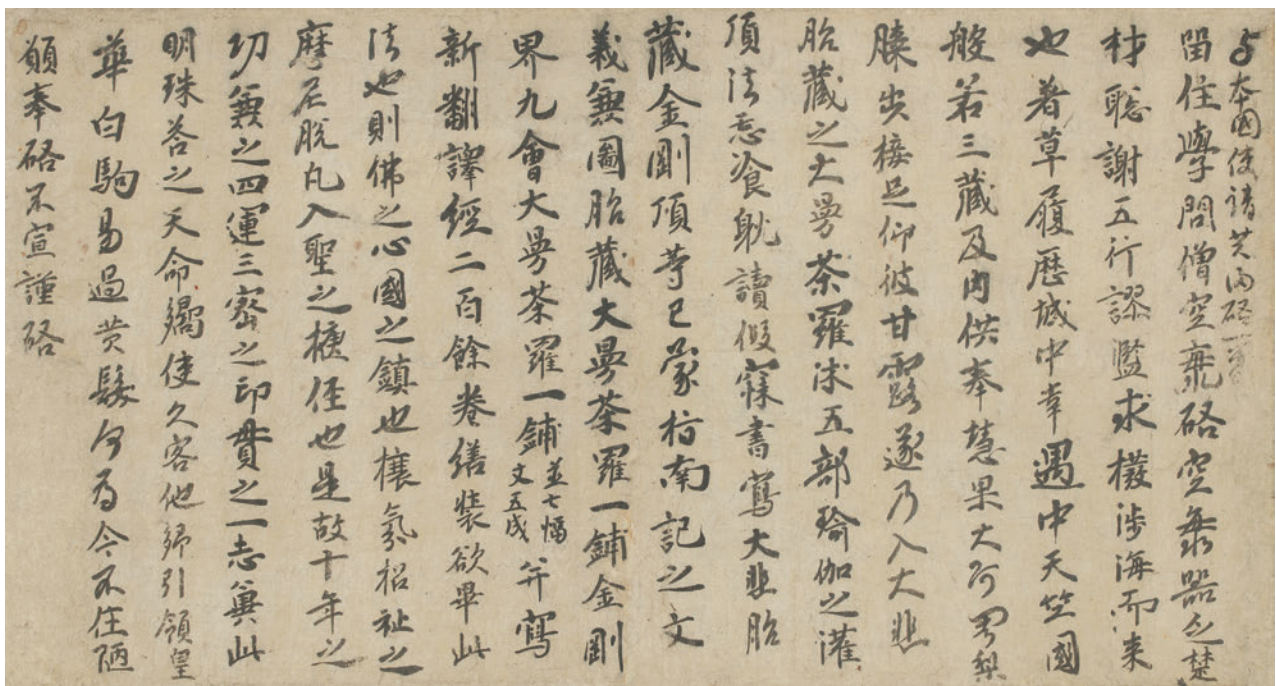 与本國使請共歸啓一首
留住學問僧空海啓空海器乏楚
材聡謝五行謬濫求撥渉海而来
也著草履歷城中幸遇中天竺國
般若三藏及内供奉慧果大阿闍梨
膝步接足仰彼甘露遂乃入大悲
胎藏之大曼荼羅沐五部瑜伽之灌
頂法忘飡躭讀假寐書寫大悲胎
藏金剛頂等已蒙指南記之文
義兼圖胎藏大曼荼羅一鋪金剛
界九會大曼荼羅一鋪並七幅丈五尺并寫
新翻譯經二百餘卷繕裝欲畢此
法也則佛之心國之鎮也攘氛招祉之
摩尼脫凡入聖之徑也是故十年之
功兼之四運三密之印貫之一志兼此
明珠答之天命嚮使久客他鄉引領皇
華白駒易過黄髮何為今不任陋
願奉啓不宣謹啓